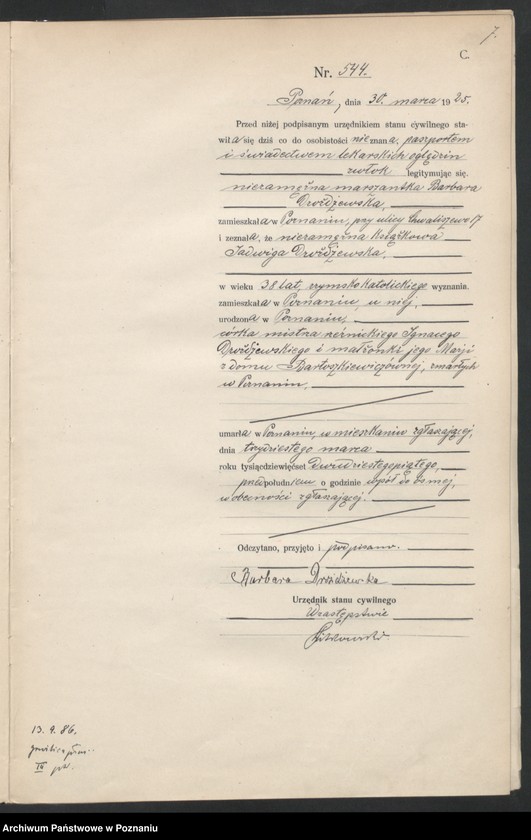 7.
C.
Nr. 544.
Poznań, dnia 30. marca 1925.
Przed niżej podpisanym urzędnikiem stanu cywilnego sta-
wiła się dziś co do osobistości nieznana, paszportem
i świadectwem lekarskich oględzin
zwłok legitymując się.
niezamężna marszantka Barbara
Drożdżewska,
zamieszkała w Poznaniu, przy ulicy Chwaliszewo 17
i zeznała, że niezamężna książkowa
Jadwiga Drożdżewska,
w wieku 38 lat, rzymsko katolickiego wyznania.
zamieszkała w Poznaniu, u niej,
urodzona w Poznaniu,
córka mistrza rzeźnickiego Ignacego
Drożdżewskiego i małżonki jego Marji
z domu Bartoszkiewiczównej, zmarłych
w Poznaniu,
umarła w Poznaniu, w mieszkaniu zgłaszającej,
dnia trzydziestego marca
roku tysiącdziewięćset dwudziestegopiątego,
przedpołudniem o godzinie wpół do ósmej,
w obecności zgłaszającej.
Odczytano, przyjęto i podpisano.
Barbara Drożdżewska
Urzędnik stanu cywilnego
W zastępstwie
13. 9. 86.
IV
Archiwum Państwowe w Poznaniu